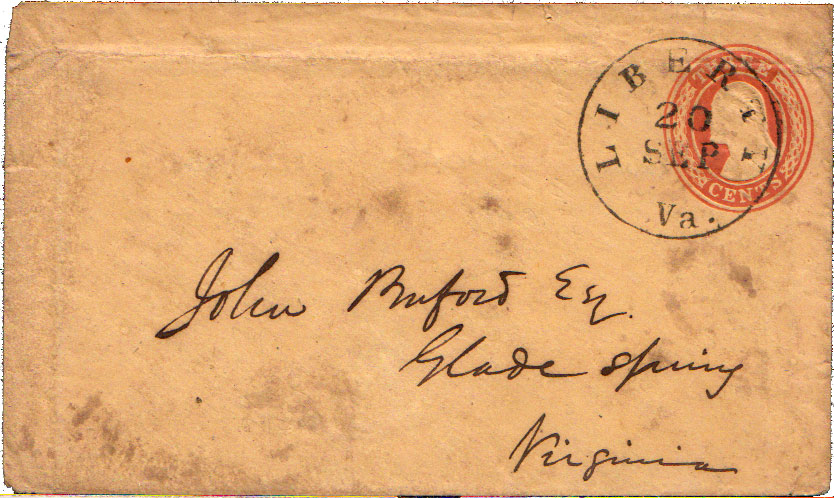 LIBERTY
20
SEP
Va.
THREE
CENTS
John Buford Esq.
Glade Spring
Virginia